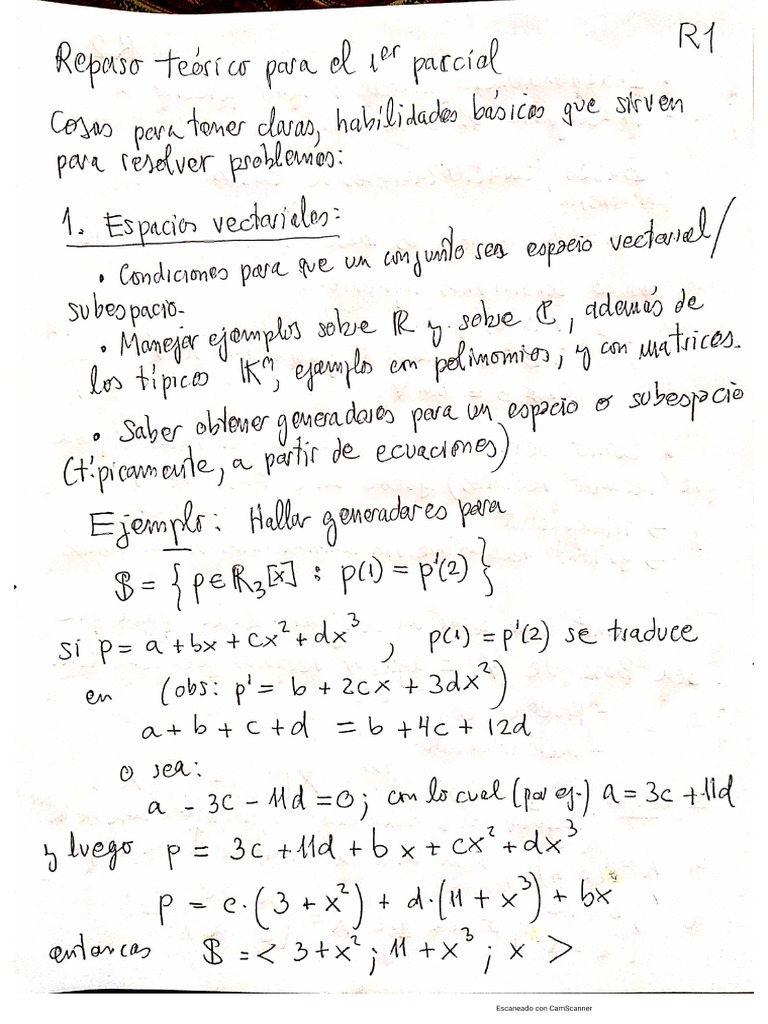 R1
Repaso teórico para el 1er parcial
Cosas para tener claras, habilidades básicas que sirven
para resolver problemas:
1. Espacios vectoriales:
• Condiciones para que un conjunto sea espacio vectorial/
subespacio.
• Manejar ejemplos sobre ℝ y sobre ℂ, además de
los típicos 𝕂ⁿ, ejemplos con polinomios, y con matrices.
• Saber obtener generadores para un espacio o subespacio
(típicamente, a partir de ecuaciones)
Ejemplo: Hallar generadores para
𝕊 = { p∈ℝ₃[x] : p(1) = p'(2) }
si p = a + bx + cx² + dx³ , p(1) = p'(2) se traduce
en (obs: p' = b + 2cx + 3dx²)
a + b + c + d = b + 4c + 12d
o sea:
a - 3c - 11d = 0; con lo cual (por ej.) a = 3c + 11d
y luego p = 3c + 11d + bx + cx² + dx³
p = c·(3 + x²) + d·(11 + x³) + bx
entonces 𝕊 = < 3 + x² ; 11 + x³ ; x >
Escaneado con CamScanner